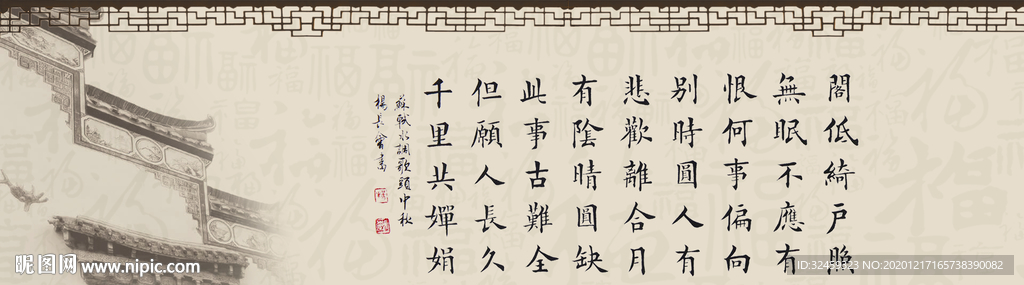 閣低綺戶照
無眠不應有
恨何事偏向
別時圓人有
悲歡離合月
有陰晴圓缺
此事古難全
但願人長久
千里共嬋娟
蘇軾水調歌頭中秋
楊長會書
昵图网 www.nipic.com
ID:32459323 NO:20201217165738390082